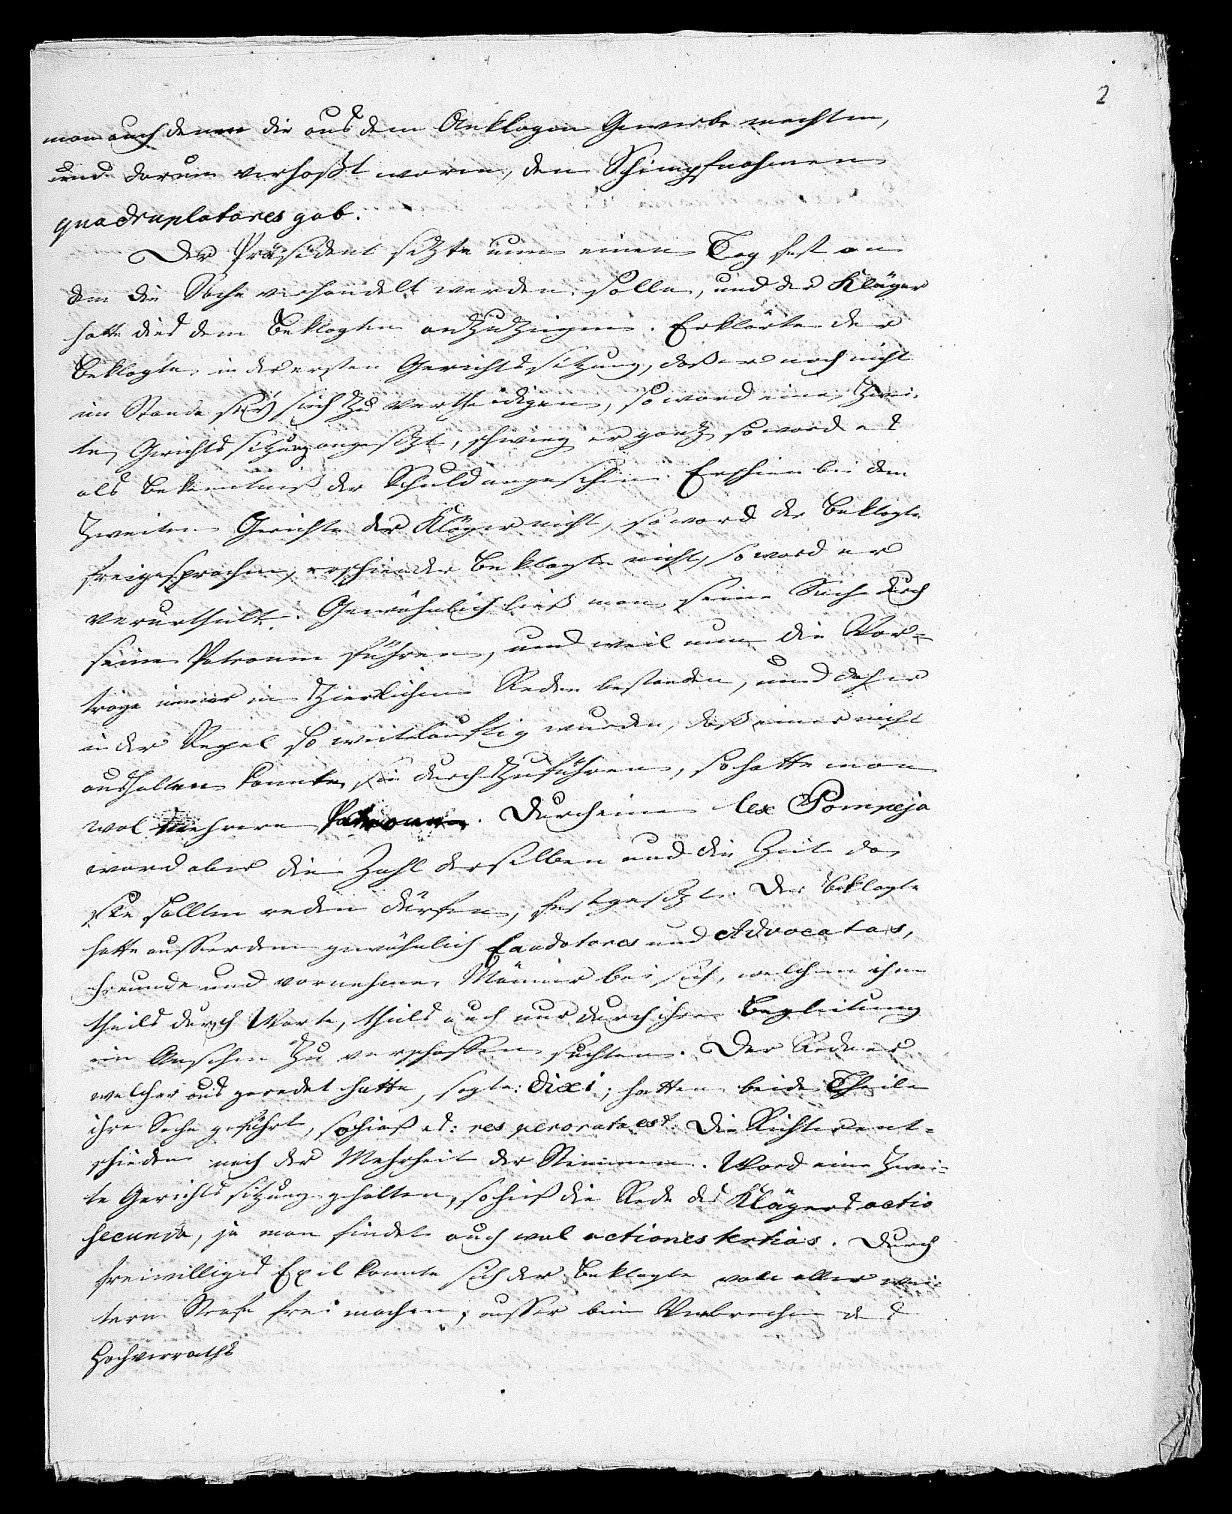 2
man auch denen die aus dem Anklagen Gewerbe machten,
und darum verhaßt waren, den Schimpfnahmen
quadruplatores gab.
Der Präsident sezte nun einen Tag fest an
dem die Sache verhandelt werden solle, und der Kläger
hatte dies dem Beklagten anzuzeigen. Erklärte der
Beklagte, in der ersten Gerichtssitzung, daß er noch nicht
im Stande sei sich zu vertheidigen, so ward eine zwei-
te Gerichtssitzung angesezt, schwieg er ganz so ward es
als Bekenntniß der Schuld angesehen. Erschien bei dem
zweiten Gerichte der Kläger nicht, so ward der Beklagte
freigesprochen, erschien der Beklagte nicht, so ward er
verurtheilt. Gewöhnlich ließ man seine Sache durch
seinen Patronen führen, und weil nun die Vor-
träge immer in zierlichen Reden bestanden, und daher
in der Regel so weitläuftig wurden, daß einer nicht
aushalten konnte, sie durchzuführen, so hatte man
wol mehrere Patronen. Durch eine lex Pompeja
ward aber die Zahl derselben und die Zeit da
sie sollten reden dürfen, festgesezt. Der Beklagte
hatte ausserdem gewöhnlich Laudatores und Advocatos,
Freunde und vornehme Männer bei sich, welche ihm
theils durch Worte, theils auch nur durch ihre Begleitung
ein Ansehen zu verschaffen suchten. Der Redner
welcher ausgeredet hatte, sagte: dixi; hatten beide Theile
ihre Sache geführt, so hieß es: res perorata est. Die Richter ent-
schieden nach der Mehrheit der Stimmen. Ward eine zwei-
te Gerichtssitzung gehalten, so hieß die Rede des Klägers actio
secunda, ja man findet auch wol actiones tertias. Durch
freiwilliges Exil konnte sich der Beklagte von aller wei-
tern Strafe frei machen, ausser beim Verbrechen des
Hochverraths